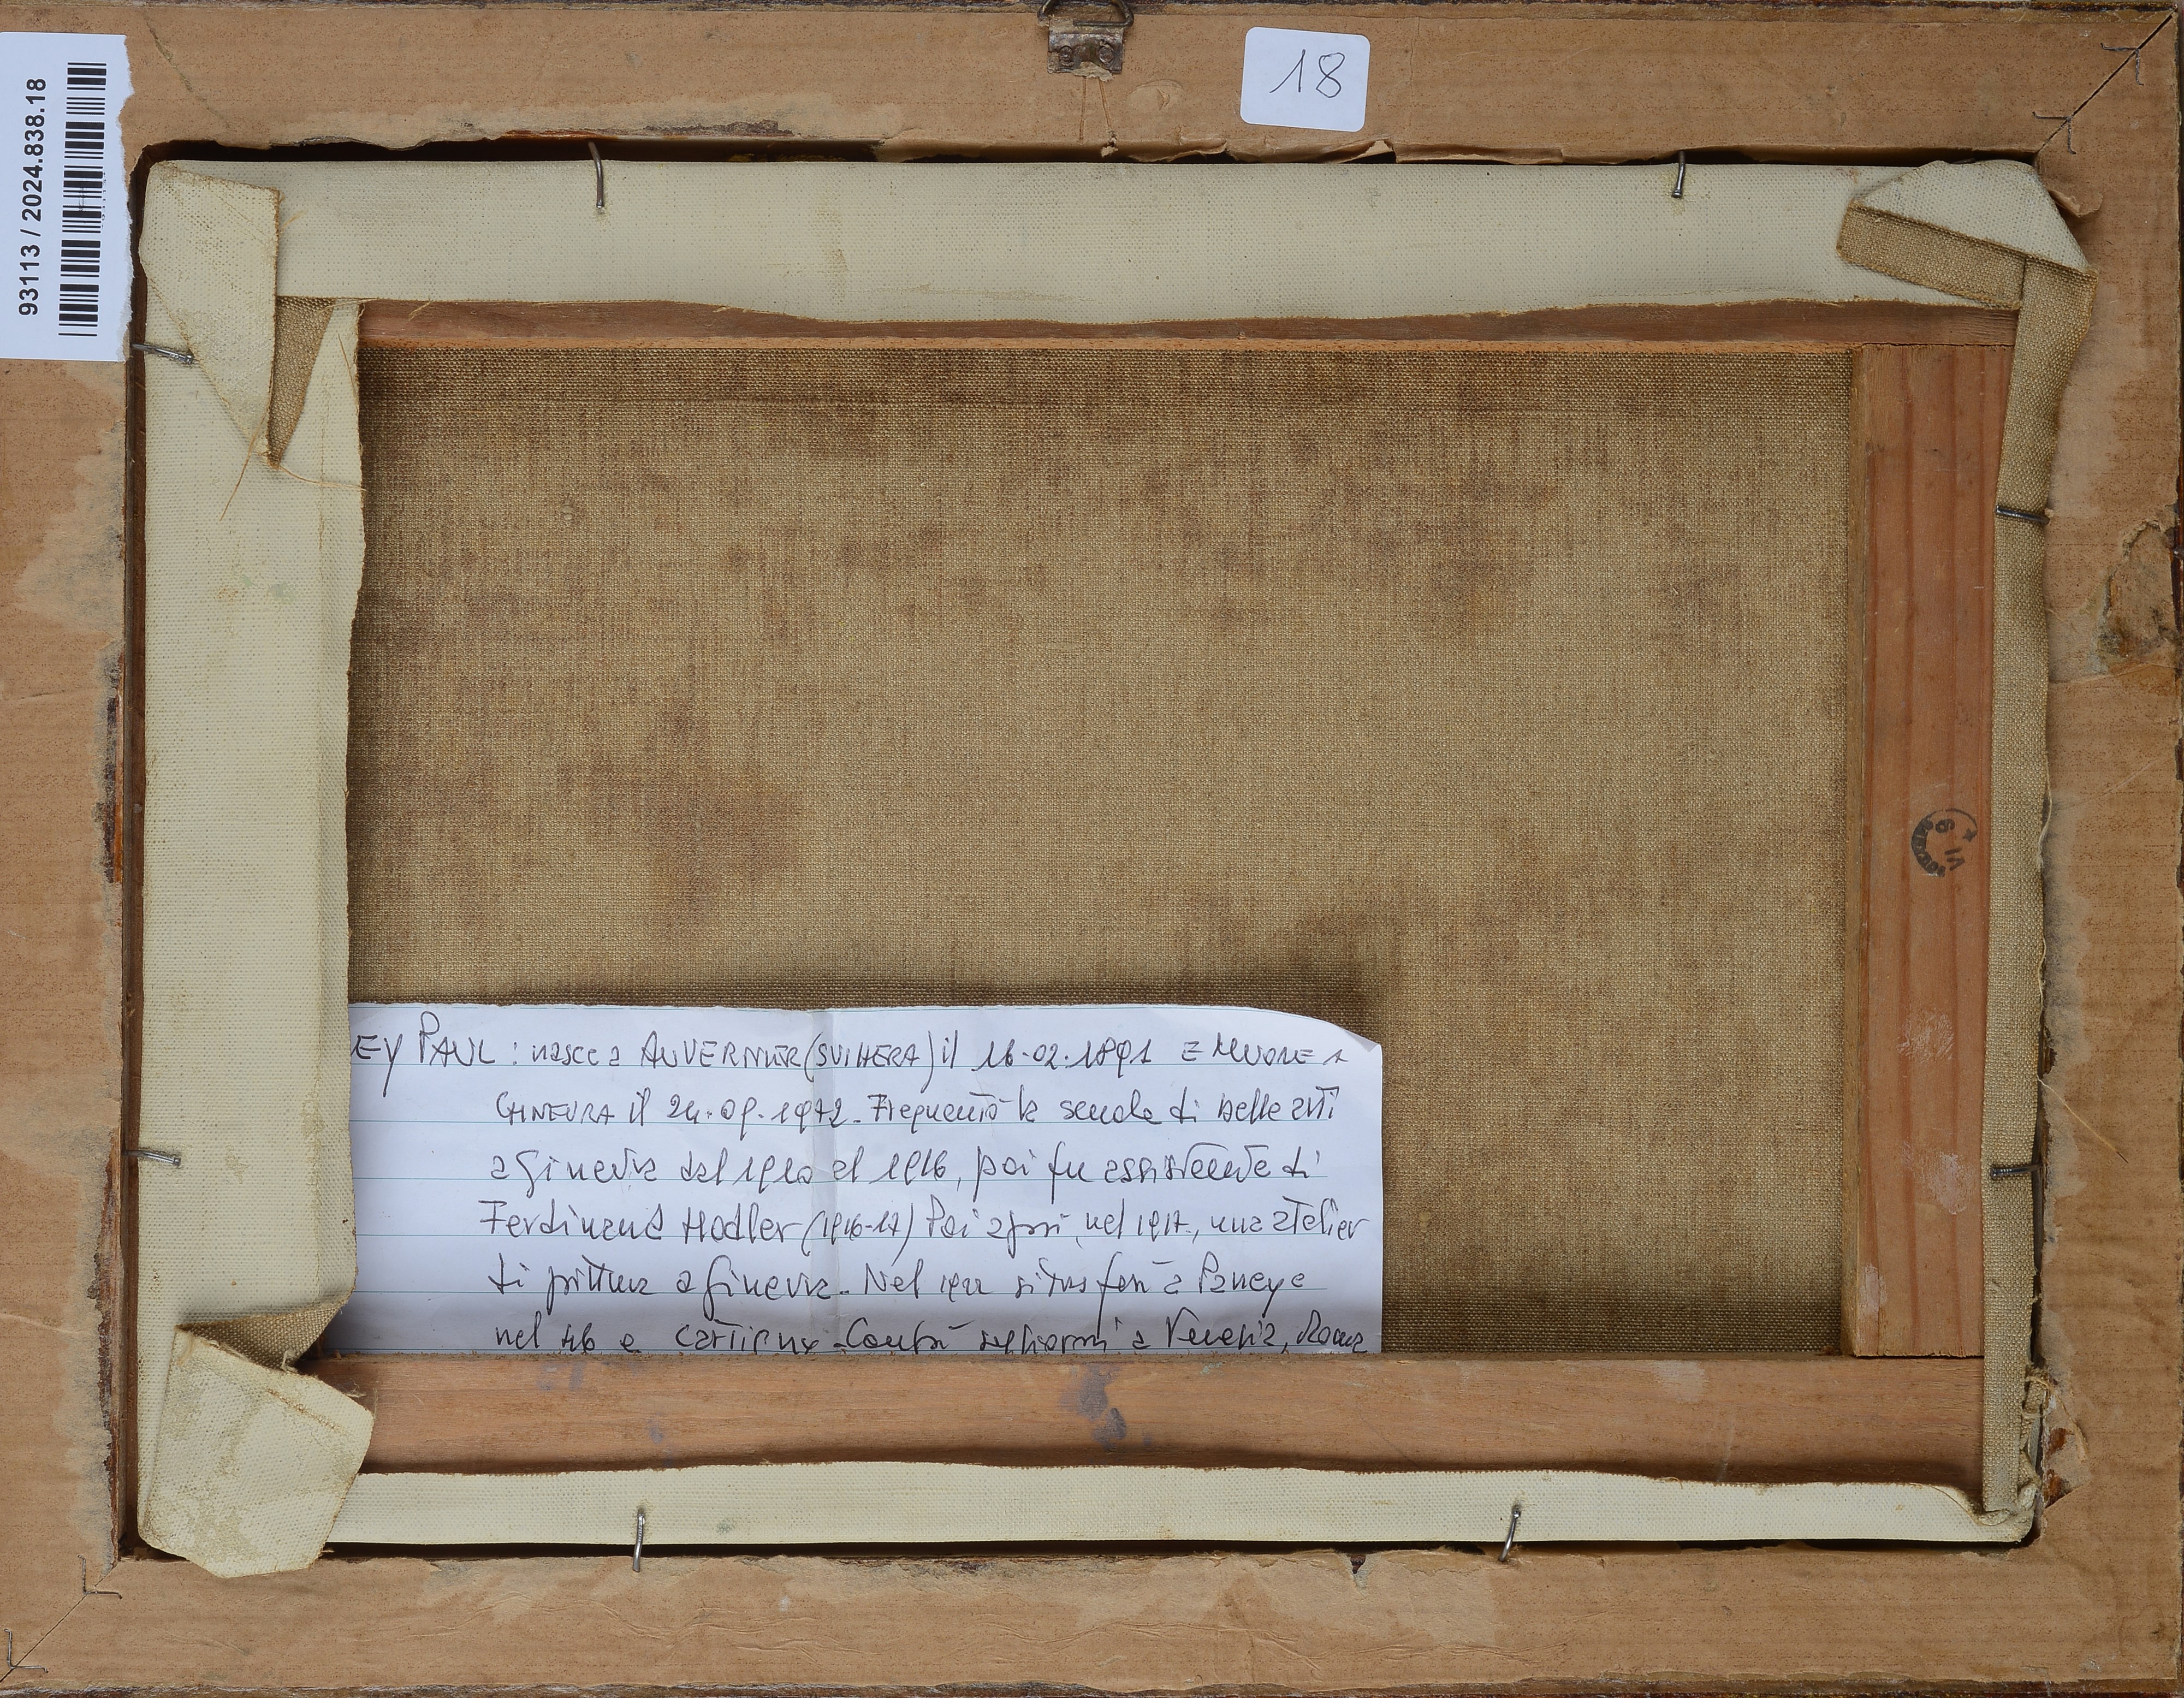 93113 / 2024.838.18
18
EY PAUL : nasce a AUVERNIER (SVIZZERA) il 16.02.1891 E MUORE A
GINEVRA il 24.09.1972. Frequentò la scuola di belle arti
a Ginevra dal 1910 al 1916, poi fu assistente di
Ferdinand Hodler (1916-17) Poi aprì, nel 1917, una atelier
di pittura a Ginevra. Nel si trasferì a Paney e
nel 46 a Cartigny. Compì soggiorni a Venezia, Roma